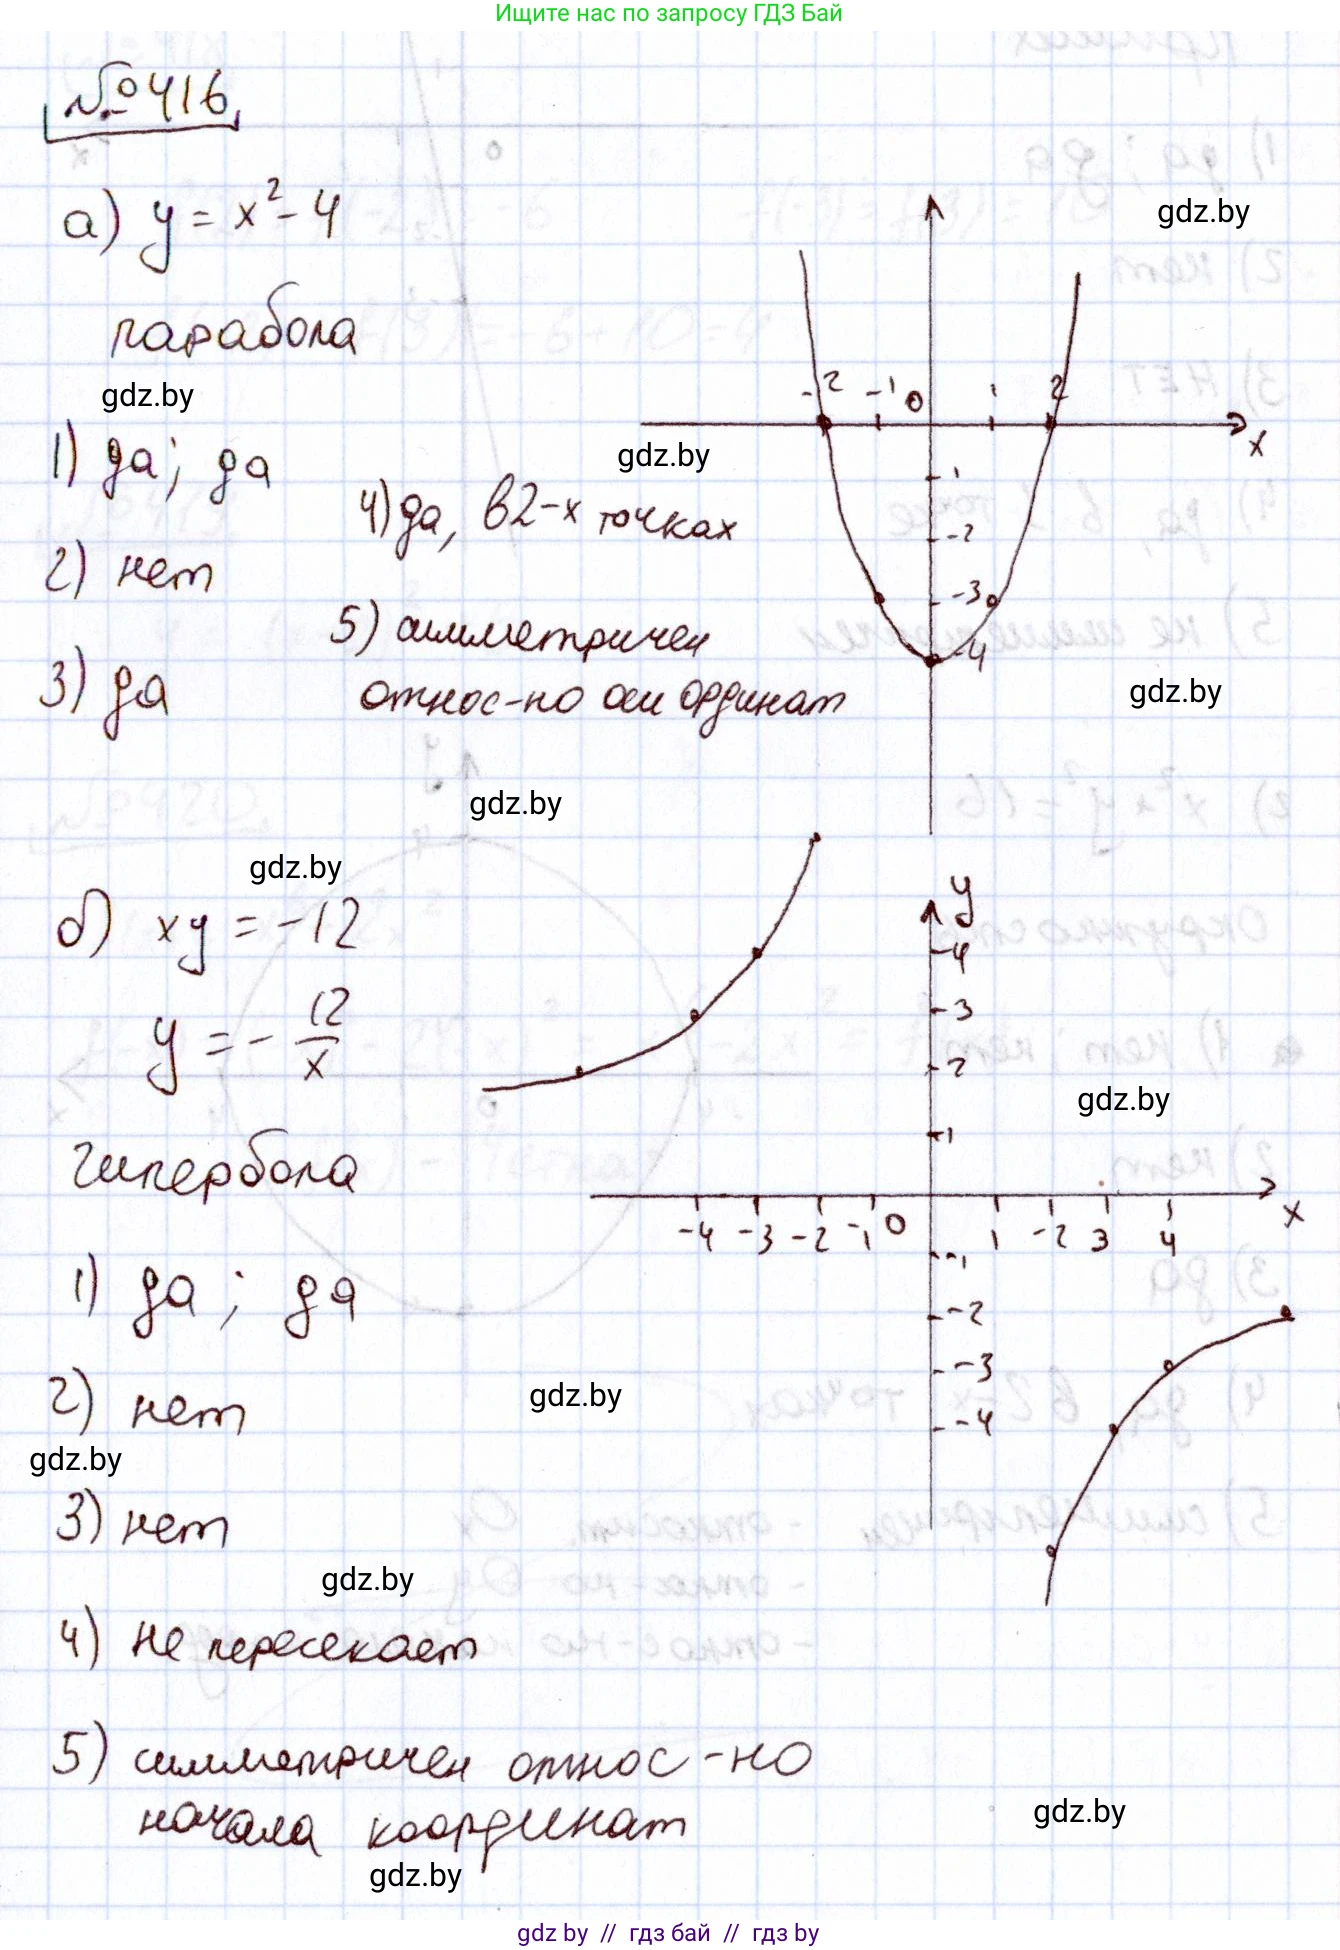 Ищите нас по запросу ГДЗ Бай
№416
а) y = x² - 4
gdz.by
парабола
gdz.by
-2 -1 0 1 2
x
1) да; да
gdz.by
4) да, в 2-х точках
-1
-2
-3
-4
2) нет
5) симметричен
относ-но оси ординат
3) да
gdz.by
gdz.by
gdz.by
б) xy = -12
y = - 12/x
y
4
3
2
1
gdz.by
гипербола
-4 -3 -2 -1 0 1 -2 3 4
x
-1
-2
-3
-4
1) да; да
2) нет
gdz.by
gdz.by
3) нет
gdz.by
4) не пересекает
5) симметричен относ-но
начала координат
gdz.by
gdz.by
gdz by // гдз бай // гдз by